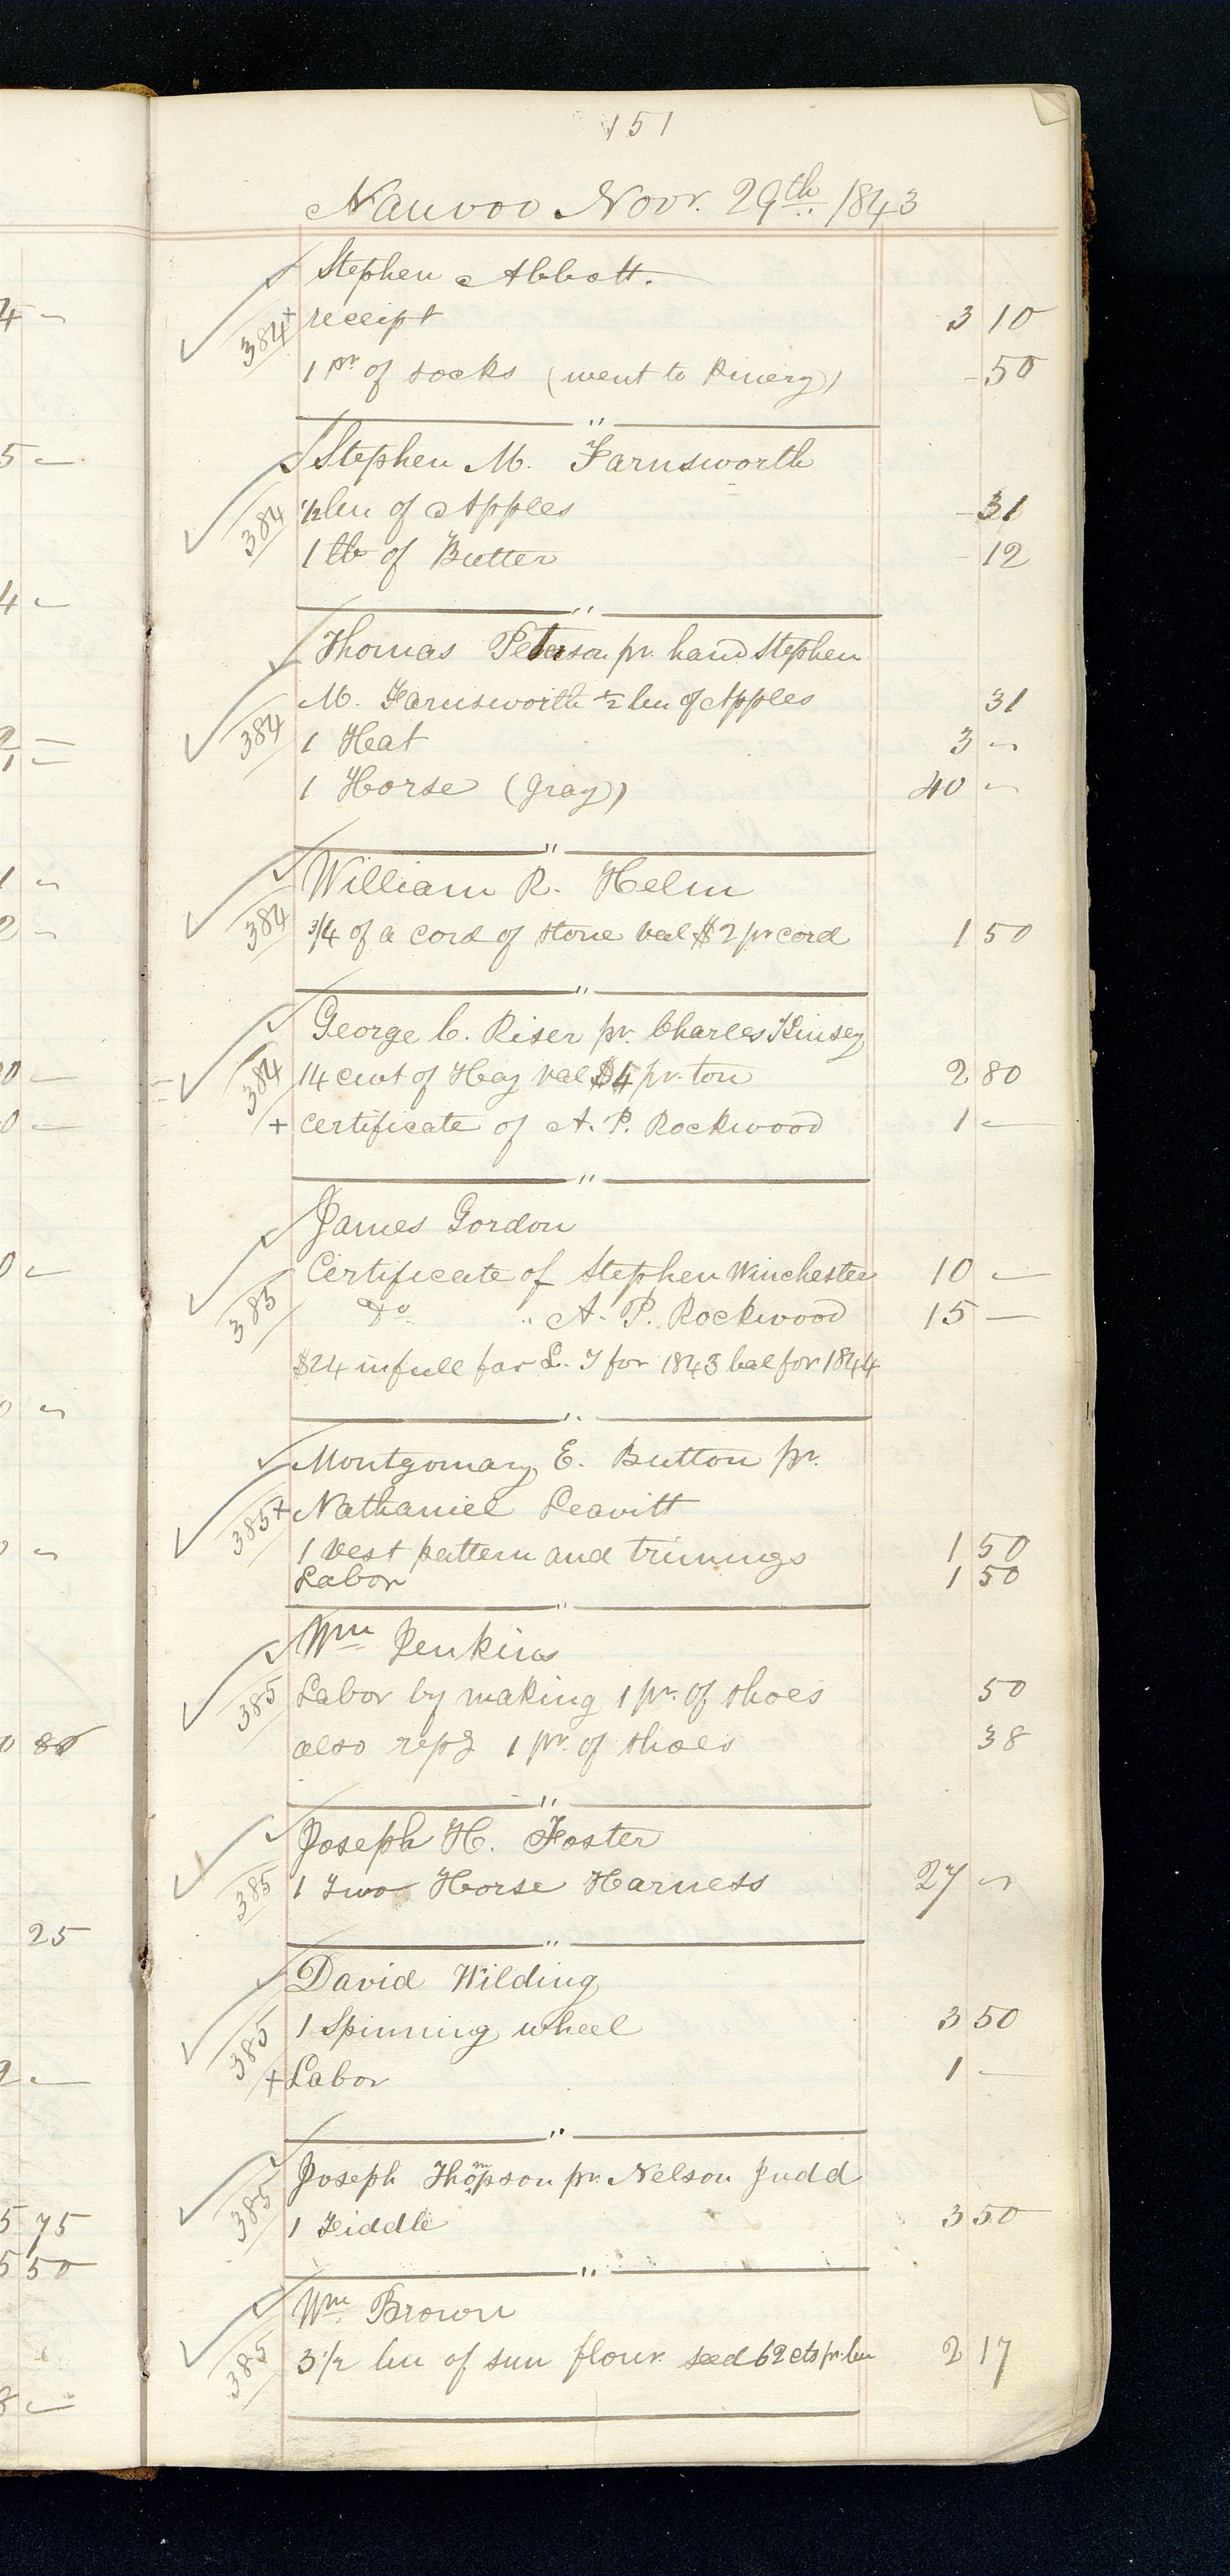 151
Nauvoo Novr. 29th 1843
Stephen Abbott.
384 + receipt 3 10
1 pr of socks (went to Pinery) - 50
"
Stephen M. Farnsworth
384 1/2 bu of Apples - 31
1 lb of Butter - 12
"
Thomas Peterson pr. hand Stephen
M. Farnsworth 1/2 bu of Apples 31
384 1 Heat 3 -
1 Horse (Gray) 40 -
"
William R. Helm
384 3/4 of a cord of stone val $2 pr cord 1 50
"
George C. Riser pr. Charles Kinsey
384 14 cwt of Hay val $4 pr. ton 2 80
+ certificate of A. P. Rockwood 1 -
"
James Gordon
Certificate of Stephen Winchester 10 -
385 Do. " A. P. Rockwood 15 -
$24 in full for L. T for 1843 bal for 1844
"
Montgomary E. Button pr.
385 + Nathaniel Leavitt
1 vest pattern and trimings 1 50
Labor 1 50
"
Wm Jenkins
385 Labor by making 1 pr. of shoes 50
also repg 1 pr. of shoes 38
"
Joseph H. Foster
385 1 Two Horse Harness 27 -
"
David Wilding
385 1 Spinning wheel 3 50
+ Labor 1 -
"
Joseph Thompson pr. Nelson Judd
385 1 Fiddle 3 50
"
Wm Brown
385 3 1/2 bu of sun flour. seed 62 cts pr. bu 2 17
80
25
75
5 50